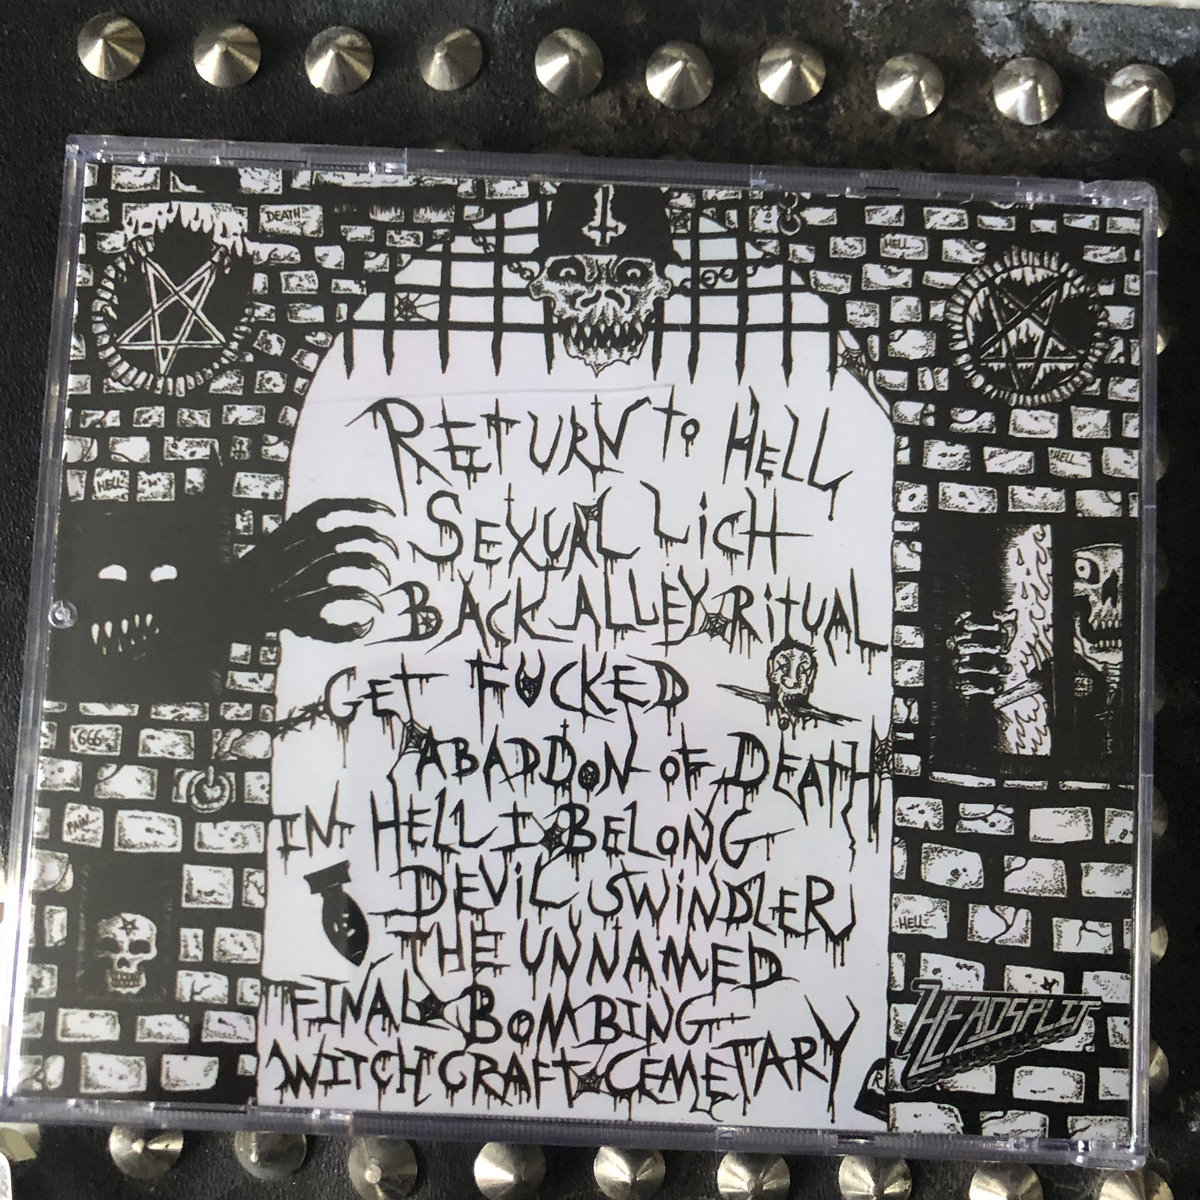 DEATH
HELL
RETURN TO HELL
HELL
HELL
SEXUAL LICH
BACK ALLEY RITUAL
GET FUCKED
666
ABADDON OF DEATH
PAIN
IN HELL I BELONG
DEVIL SWINDLER
HELL
THE UNNAMED
FINAL BOMBING
HEADSPLIT
WITCHCRAFT CEMETARY